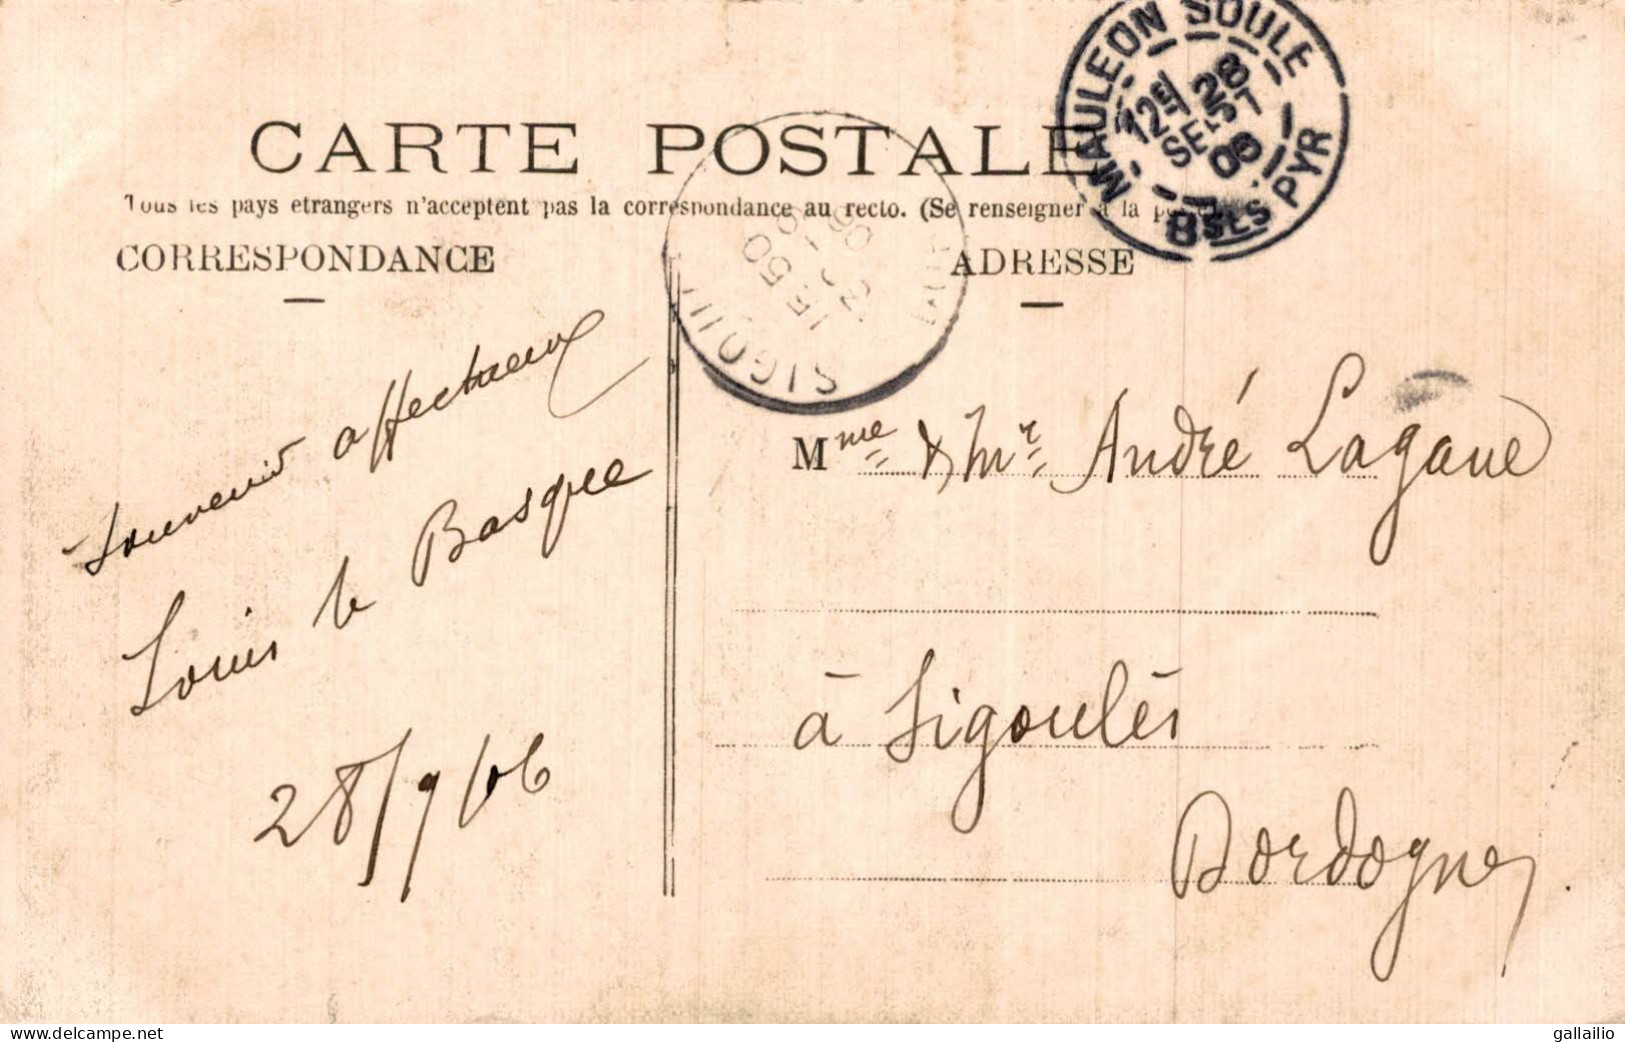 CARTE POSTALE
Tous les pays etrangers n'acceptent pas la correspondance au recto. (Se renseigner à la poste)
CORRESPONDANCE
ADRESSE
MAULEON SOULE
12E
28
SEPT
Bses PYR
SIGOUL
15 50
Souvenir affectueux
Louis le Basque
28/9/06
Mme & Mr André Lagane
à Sigoulès
Dordogne
www.delcampe.net
gallailio